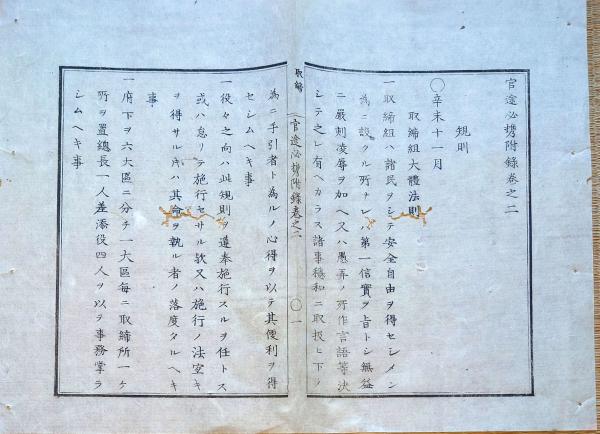 官途必携附録巻之二
規則
〇辛未十一月
取締組大體法則
一取締組ハ諸民ヲシテ安全自由ヲ得セシメン
為ニ設クル所ナレハ第一信實ヲ旨トシ無益
ニ嚴刺凌辱ヲ加ヘ又ハ愚弄ノ所作言語等決
シテ之レ有ヘカラス諸事穏和ニ取扱ヒ下ノ
取締
官途必携附録巻之二
〇一
為ニ手引者ト為ルノ心得ヲ以テ其便利ヲ得
セシムヘキ事
一役々之向ハ此規則ヲ遵奉施行スルヲ任トス
或ハ怠リテ施行セサル歟又ハ施行ノ法宜キ
ヲ得サル片ハ其命ヲ執ル者ノ落度タルヘキ
事
一府下ヲ六大區ニ分チ一大區毎ニ取締所一ケ
所ヲ置總長一人差添役四人ヲ以ヲ事務掌ラ
シムヘキ事